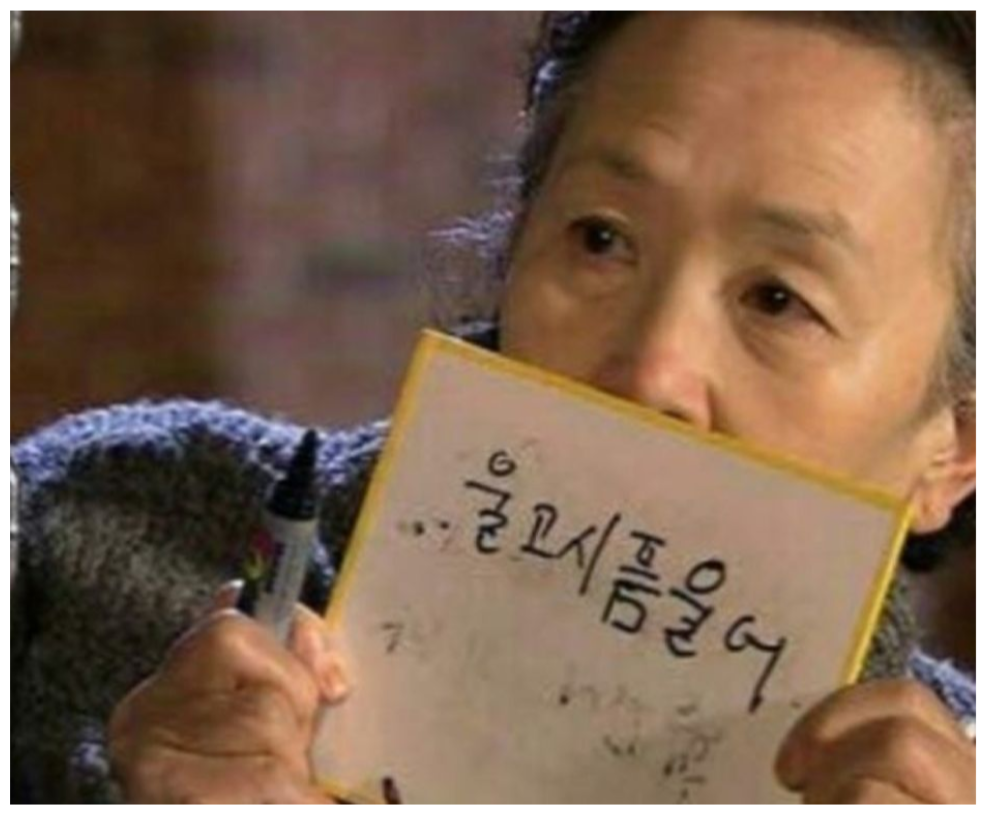 울고시픔울어